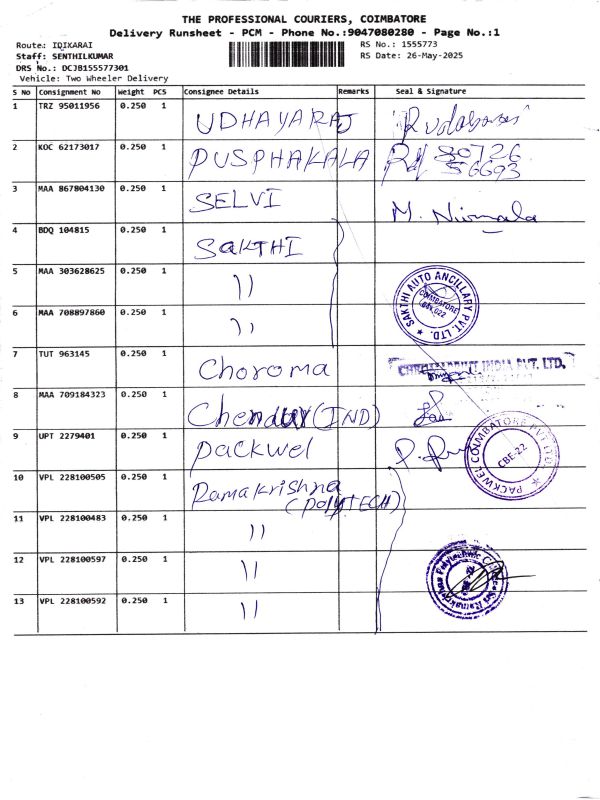 THE PROFESSIONAL COURIERS, COIMBATORE
Delivery Runsheet - PCM - Phone No.:9047080280 - Page No.:1
Route: IDIKARAI
Staff: SENTHILKUMAR
DRS No.: DCJB155577301
Vehicle: Two Wheeler Delivery
RS No.: 1555773
RS Date: 26-May-2025
S No Consignment No Weight PCS Consignee Details Remarks Seal & Signature
1 TRZ 95011956 0.250 1 UDHAYARAJ
2 KOC 62173017 0.250 1 PUSPHAKALA 80726
56693
3 MAA 867804130 0.250 1 SELVI M. Nirmala
4 BDQ 104815 0.250 1 SAKTHI
5 MAA 303628625 0.250 1 ))
SAKTHI AUTO ANCILLARY PVT. LTD.
COIMBATORE
641 022
6 MAA 708897860 0.250 1 ))
7 TUT 963145 0.250 1 Choroma
INDIA PVT. LTD.
8 MAA 709184323 0.250 1 Chendur (IND)
9 UPT 2279401 0.250 1 Packwel
PACKWEL COIMBATORE PVT LTD
CBE-22
10 VPL 228100505 0.250 1 Ramakrishna
(POLYTECH)
11 VPL 228100483 0.250 1 ))
12 VPL 228100597 0.250 1 ))
Sri Ramakrishna Polytechnic College
13 VPL 228100592 0.250 1 ))